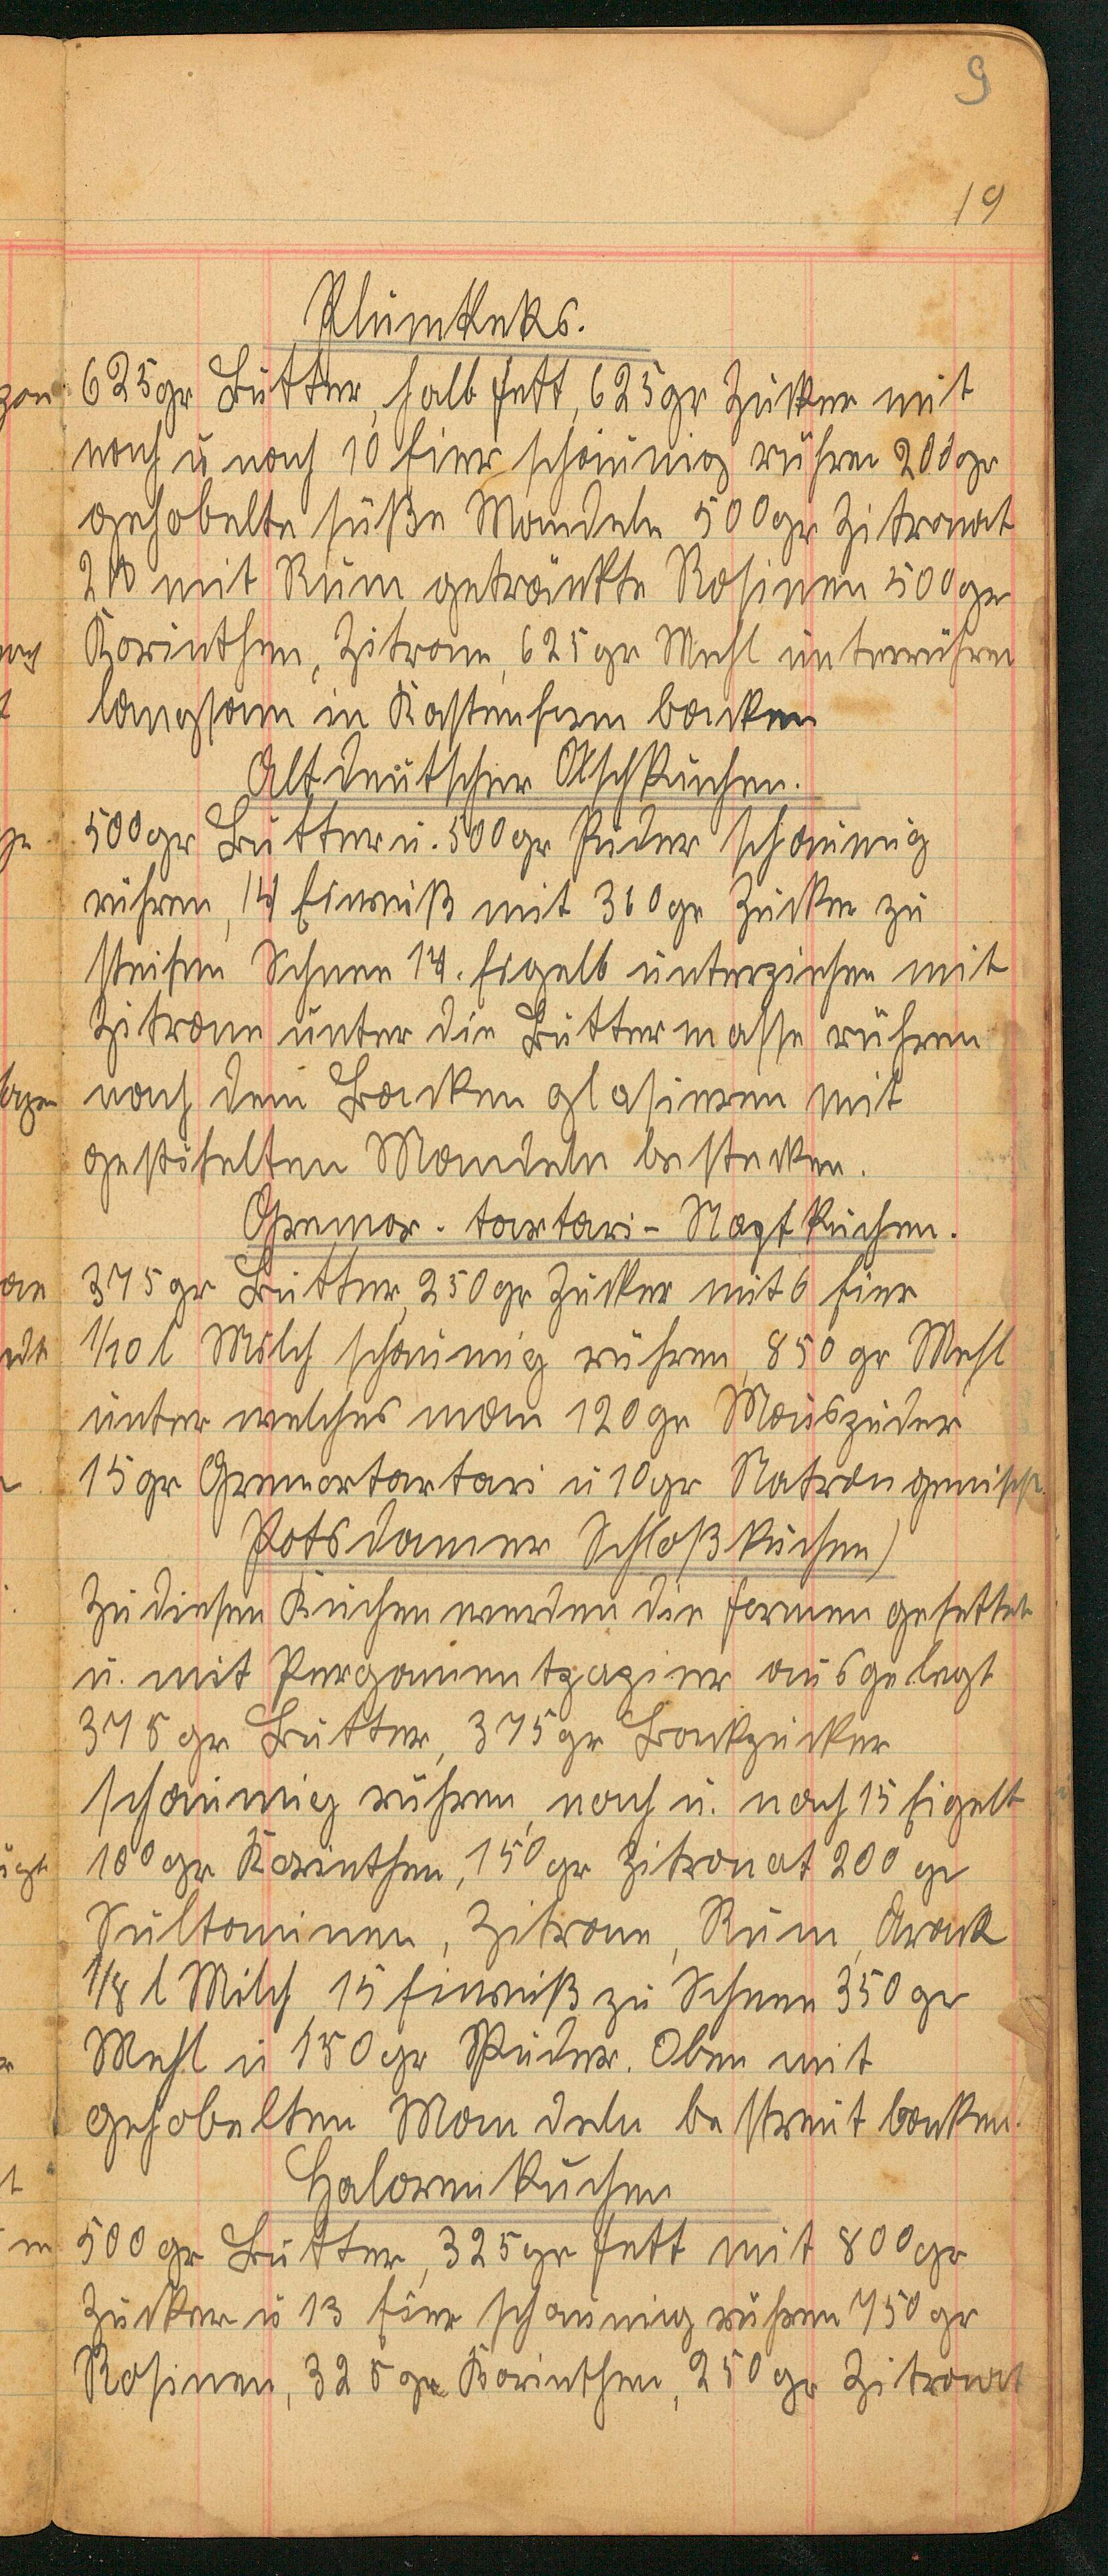 9
19
Plumkeks.
625gr Butter, halb Fett, 625gr Zucker mit
nach u nach 10 Eier schaumig rühren 200gr
gehobelte süße Mandeln 500gr Zitronat
200 mit Rum getränkte Rosinen 500gr
Korinthen, Zitrone, 625gr Mehl unterrühren
langsam in Kastenform backen
Altdeutscher Aschkuchen.
500gr Butter u. 500gr Puder schaumig
rühren, 14 Eiweiß mit 360gr Zucker zu
steifen Schnee 14. Eigelb unterziehen mit
Zitrone unter die Buttermasse rühren
nach dem Backen glasieren mit
gestiftelten Mandeln bestecken.
Gremor-tartari-Napfkuchen.
375gr Butter, 250gr Zucker mit 6 Eier
1/10 l Milch schaumig rühren, 850 gr Mehl
unter welches man 120gr Maispuder
15gr Gremortartari u 10gr Natron gemischt.
Potsdamer Schloßkuchen)
Zu diesen Kuchen werden die Formen gefettet
u. mit Pergamentpapier ausgelegt
375 gr Butter, 375gr Backzucker
schaumig rühren, nach u. nach 15 Eigelb
100gr Korinthen, 150gr Zitronat 200 gr
Sultaninen, Zitrone, Rum, Arack
1/8 l Milch 15 Eiweiß zu Schnee 350gr
Mehl u 150gr Puder. Oben mit
gehobelten Mandeln bestreut backen.
Halorenkuchen
500gr Butter, 325gr Fett mit 800gr
Zucker u 13 Eier schaumig rühren 750gr
Rosinen, 325gr Korinthen, 250gr Zitronat